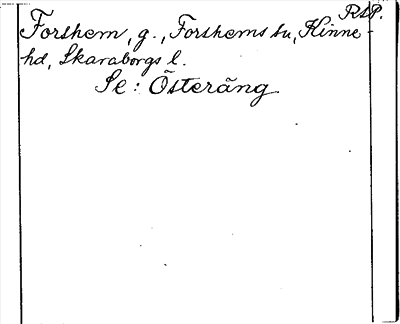 RSP.
Forshem, g., Forshems sn, Kinne-
hd, Skaraborgs l.
Se: Österäng